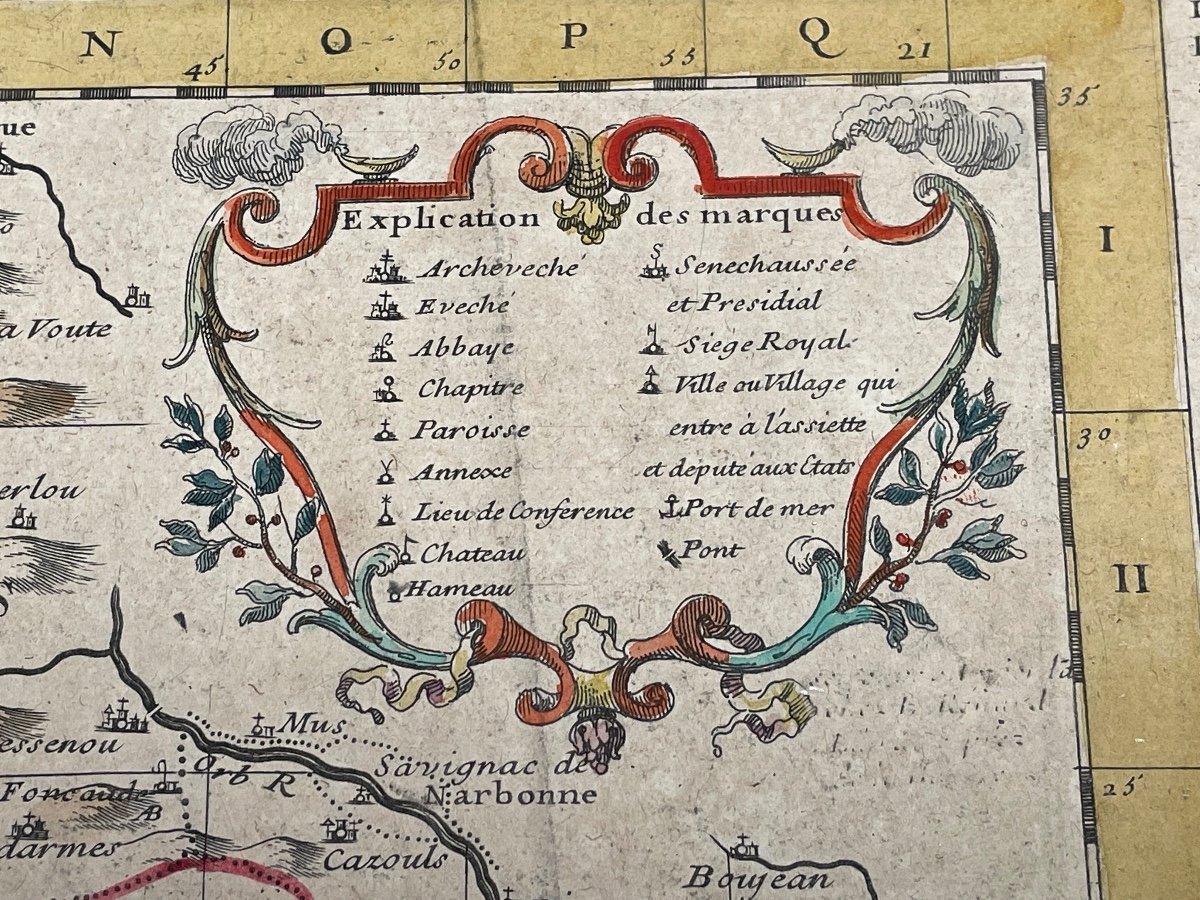 N O P Q
45 50 55 21
35
ue
Explication des marques
Archeveché
Eveché
Abbaye
Chapitre
Paroisse
Annexe
Lieu de Conference
Chateau
Hameau
Senechaussée
et Presidial
Siege Royal
Ville ou Village qui
entre à l'assiette
et depute aux Etats
Port de mer
Pont
I
a Voute
30
erlou
II
essenou
Mus
Orb R
Savignac de
Narbonne
Foncaude
AB
25
darmes
Cazouls
Boujean